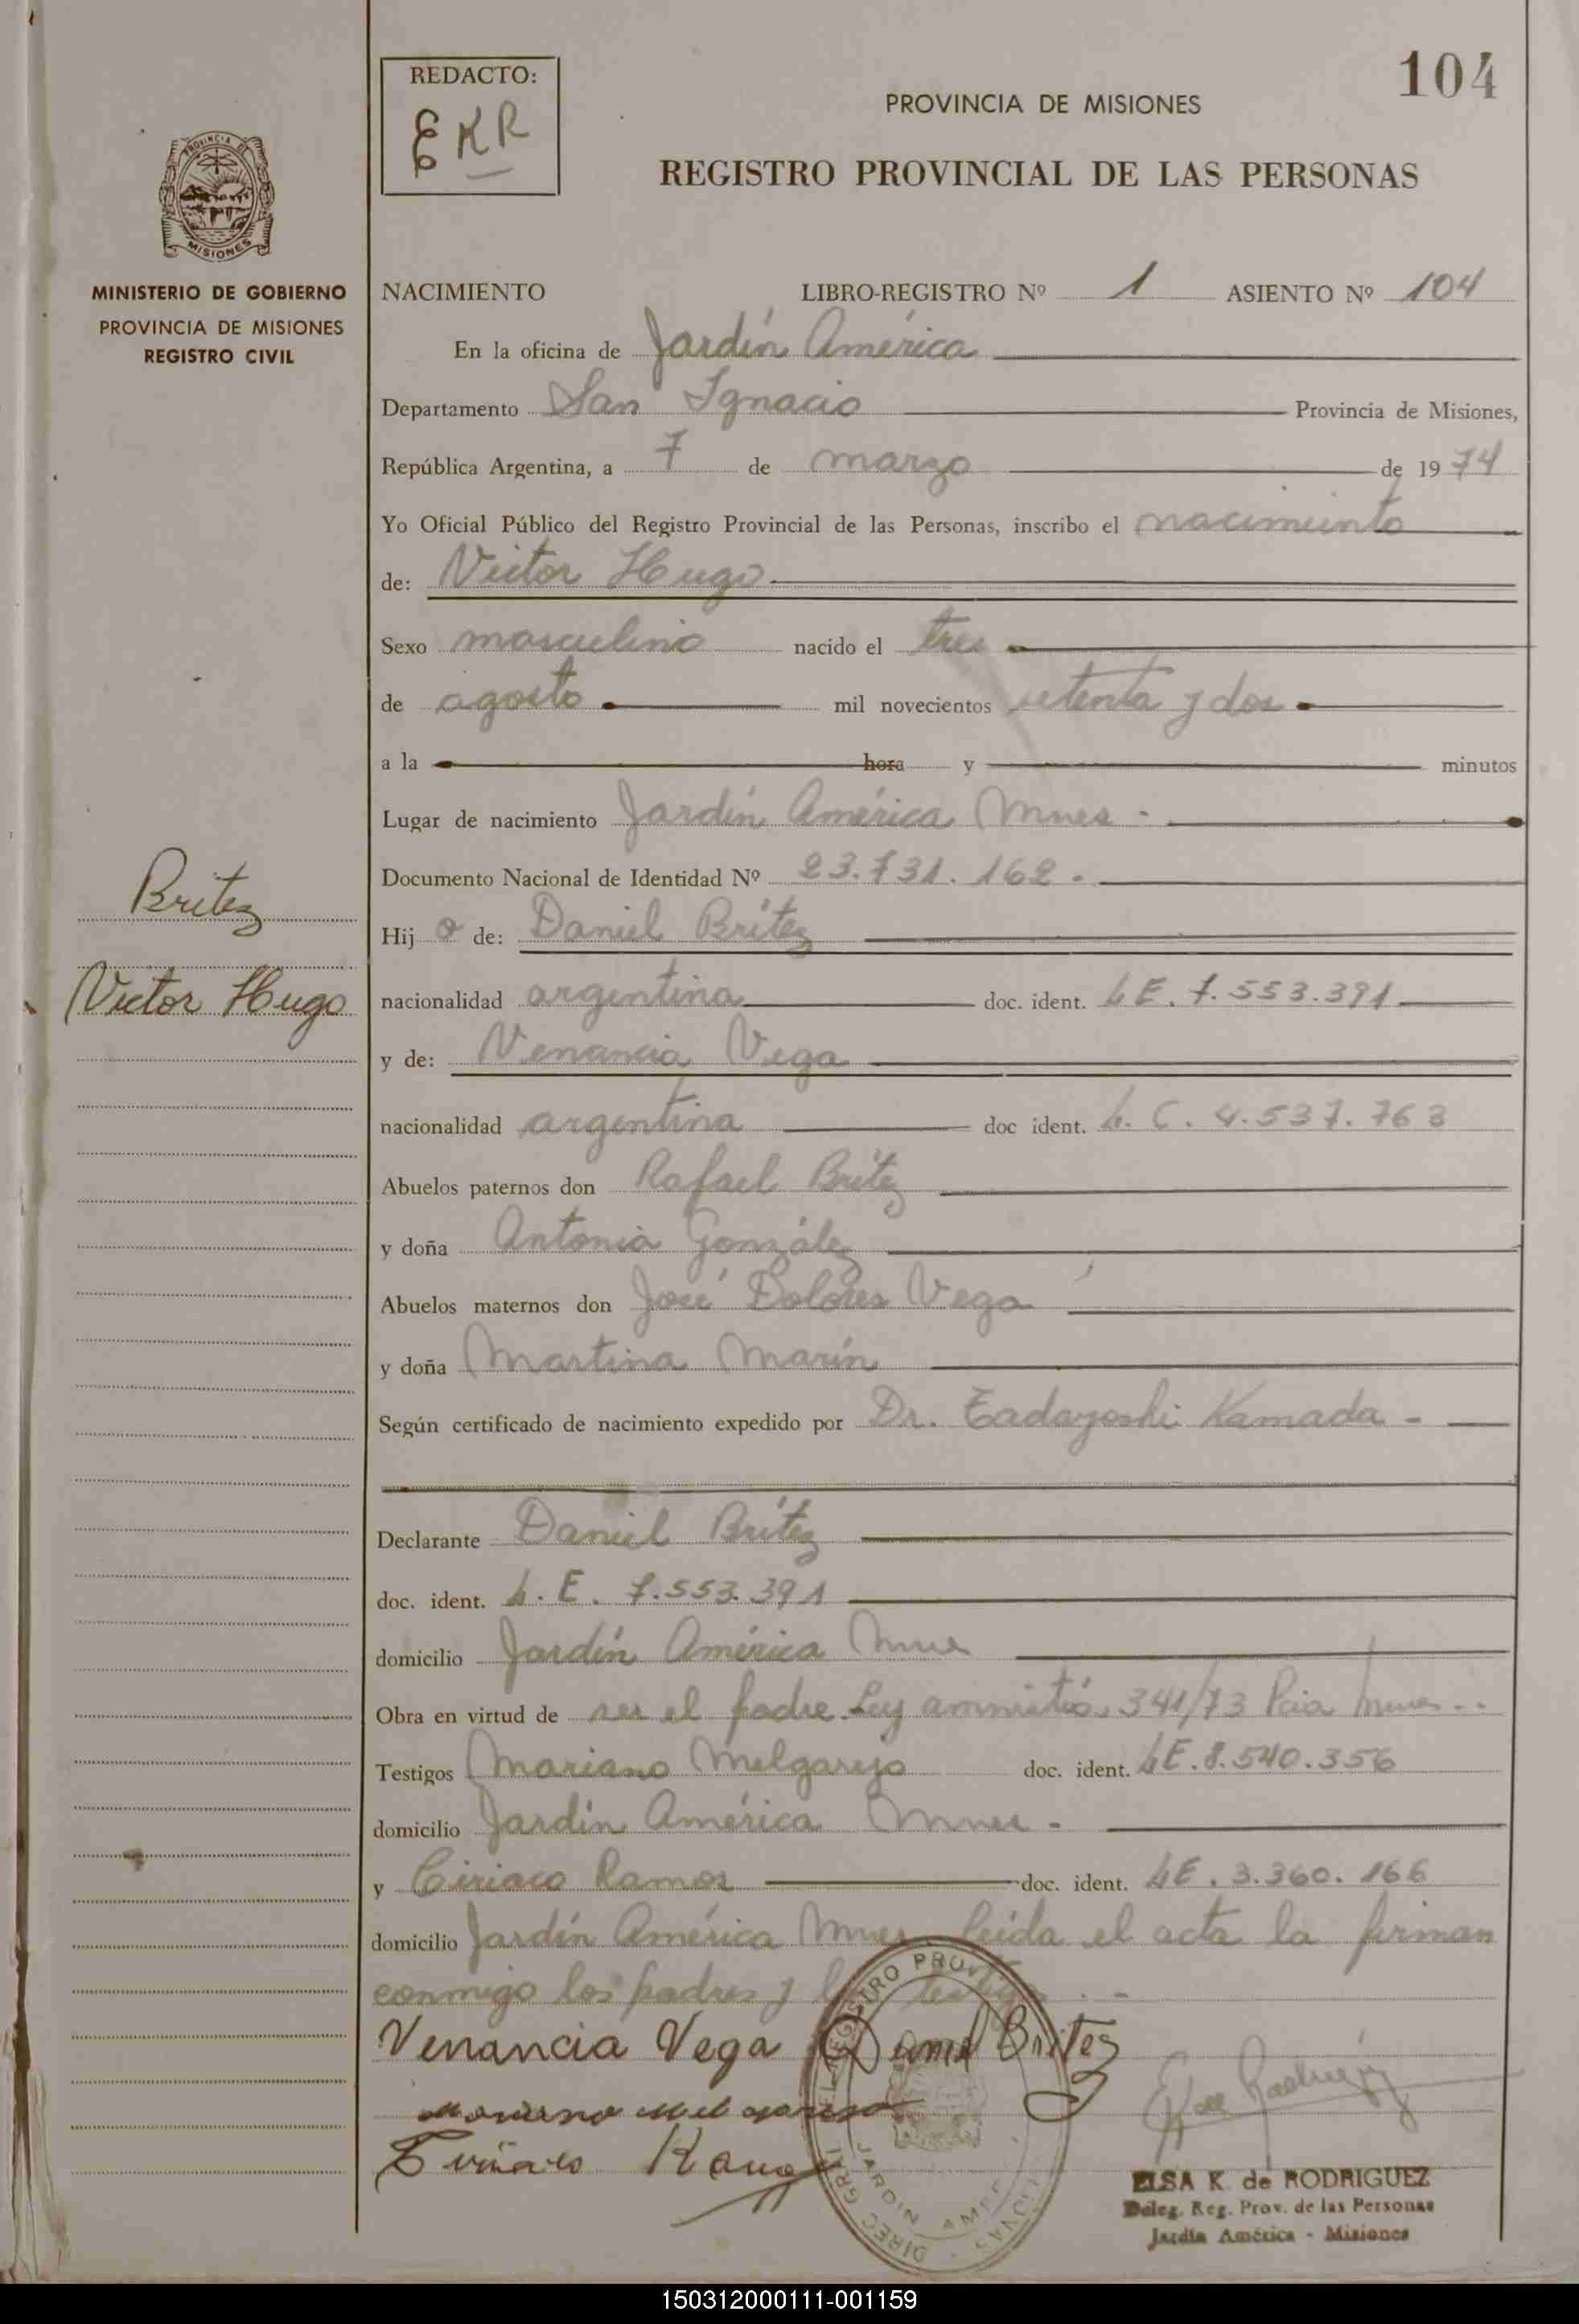 104
REDACTO:
EKR
PROVINCIA DE MISIONES
REGISTRO PROVINCIAL DE LAS PERSONAS
PROVINCIA DE
MISIONES
MINISTERIO DE GOBIERNO
PROVINCIA DE MISIONES
REGISTRO CIVIL
NACIMIENTO LIBRO-REGISTRO Nº 1 ASIENTO Nº 104
En la oficina de Jardín América
Departamento San Ignacio Provincia de Misiones,
República Argentina, a 7 de marzo de 1974
Yo Oficial Público del Registro Provincial de las Personas, inscribo el nacimiento
de: Victor Hugo
Sexo masculino nacido el tres
de agosto mil novecientos setenta y dos
a la hora y minutos
Lugar de nacimiento Jardín América Mnes -
Documento Nacional de Identidad Nº 23.731.162.
Britez
Victor Hugo
Hijo de: Daniel Britez
nacionalidad argentina doc. ident. L.E. 7.553.391
y de: Venancia Vega
nacionalidad argentina doc ident. L.C. 4.537.763
Abuelos paternos don Rafael Britez
y doña Antonia González
Abuelos maternos don José Dolores Vega
y doña Martina Marín
Según certificado de nacimiento expedido por Dr. Tadayoshi Kamada -
Declarante Daniel Britez
doc. ident. L.E. 7.553.391
domicilio Jardín América Mnes
Obra en virtud de ser el padre Ley amnistía 341/73 Pcia Mnes --
Testigos Mariano Melgarejo doc. ident. LE.8.540.356
domicilio Jardín América Mnes -
y Ciriaco Ramos doc. ident. LE. 3.360.166
domicilio Jardín América Mnes. Leída el acta la firman
conmigo los padres y los testigos. -
Venancia Vega Daniel Britez
Mariano Melgarejo
Ramos
ELSA K. de RODRIGUEZ
Deleg. Reg. Prov. de las Personas
Jardín América - Misiones
150312000111-001159